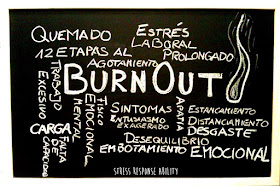 QUEMADO
ESTRÉS
LABORAL
PROLONGADO
12 ETAPAS AL
AGOTAMIENTO
BURNOUT
TRABAJO
EXCESIVO
FÍSICO
EMOCIONAL
MENTAL
SÍNTOMAS
ENTUSIASMO
EXAGERADO
APATÍA
ESTANCAMIENTO
DISTANCIAMIENTO
DESGASTE
DESEQUILIBRIO
CARGA
FALTA
DE
EMBOTAMIENTO
EMOCIONAL
STRESS RESPONSE ABILITY